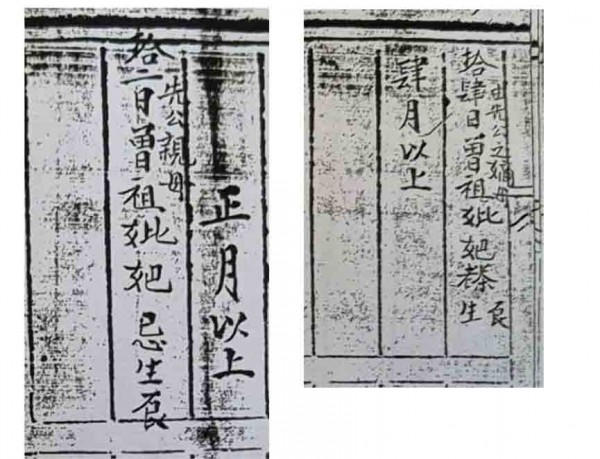 正月以上
先公親母
拾二日曾祖妣妑 忌生辰
先公之嫡母
拾肆日曾祖妣妑 生辰
肆月以上